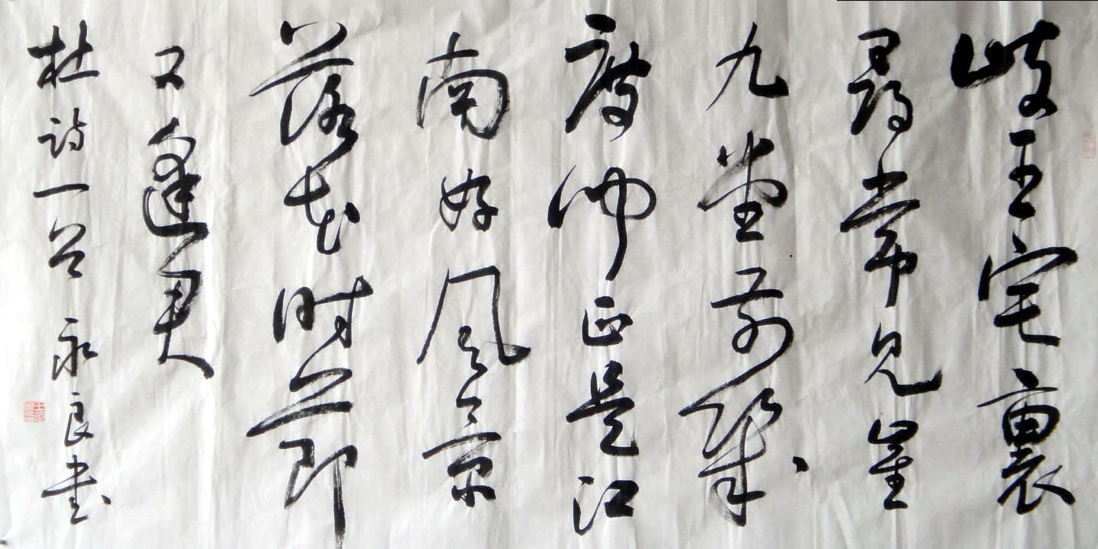 岐王宅裏
尋常見崔
九堂前幾
度聞正是江
南好風景
落花時節
又逢君
杜诗一首 永良書